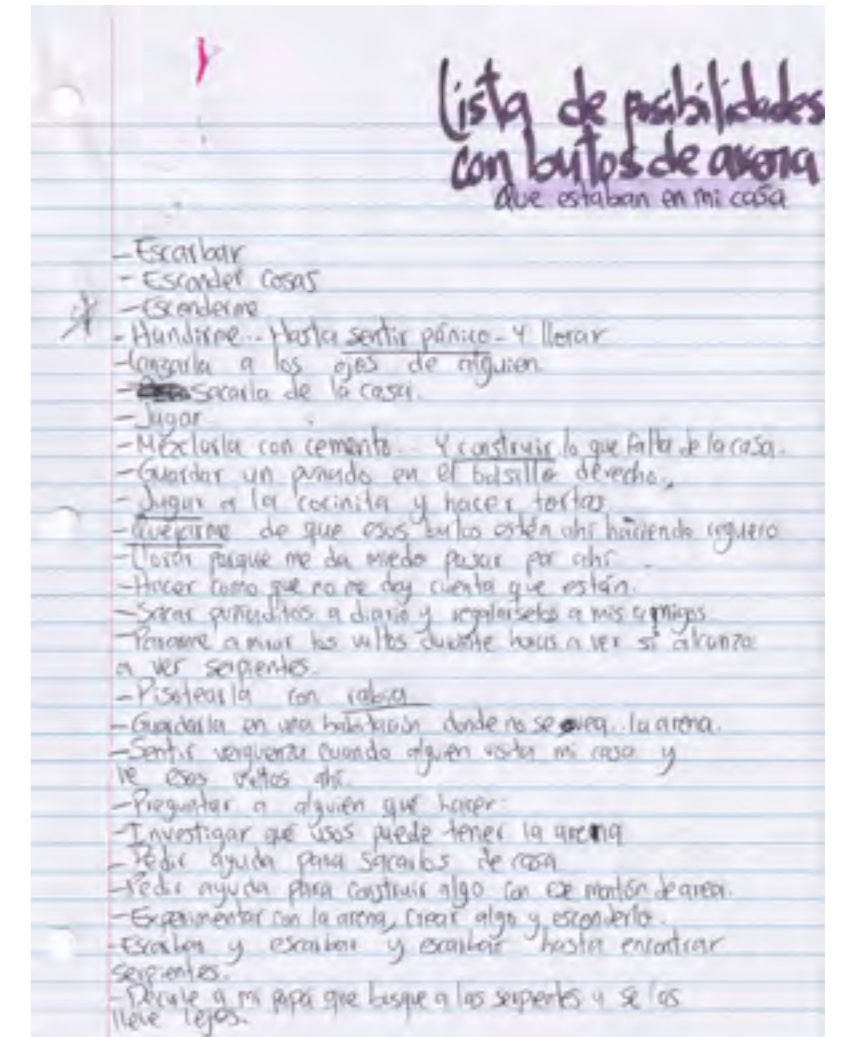 Lista de posibilidades
con bultos de arena
que estaban en mi casa
- Escarbar
- Esconder cosas
- Esconderme
- Hundirme... Hasta sentir pánico - Y llorar
- Lanzarla a los ojos de alguien.
- Sacarla de la casa.
- Jugar
- Mezclarla con cemento... Y construir lo que falta de la casa.
- Guardar un puñado en el bolsillo derecho.
- Jugar a la cocinita y hacer tortas
- Quejarme de que esos bultos estén ahí haciendo reguero
- Llorar porque me da miedo pasar por ahí.
- Hacer como que no me doy cuenta que están.
- Sacar puñaditos a diario y regalárselos a mis amigos
- Pararme a mirar los vultos durante horas a ver si alcanza
a ver serpientes.
- Pisotearla con rabia
- Guardarla en una habitación donde no se vea... la arena.
- Sentir vergüenza cuando alguien visita mi casa y
ve esos vultos ahí.
- Preguntar a alguien qué hacer.
- Investigar qué usos puede tener la arena
- Pedir ayuda para sacarlos de casa
- Pedir ayuda para construir algo con ese montón de arena.
- Experimentar con la arena, crear algo y esconderlo.
- Escarbar y escarbar y escarbar hasta encontrar
serpientes.
- Decirle a mi papá que busque a las serpientes y se las
lleve lejos.